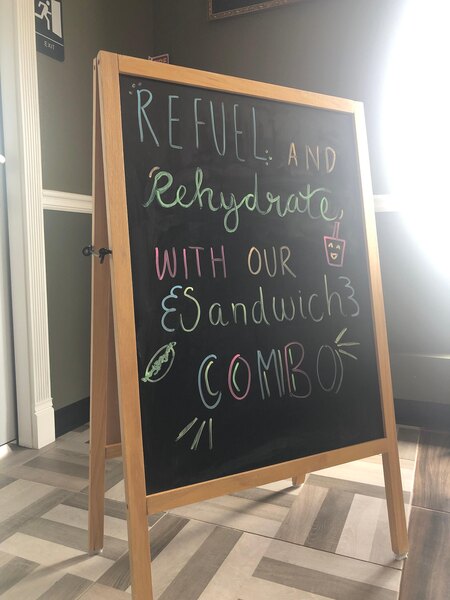 Exit
REFUEL AND
Rehydrate
WITH OUR
{Sandwich}
COMBO